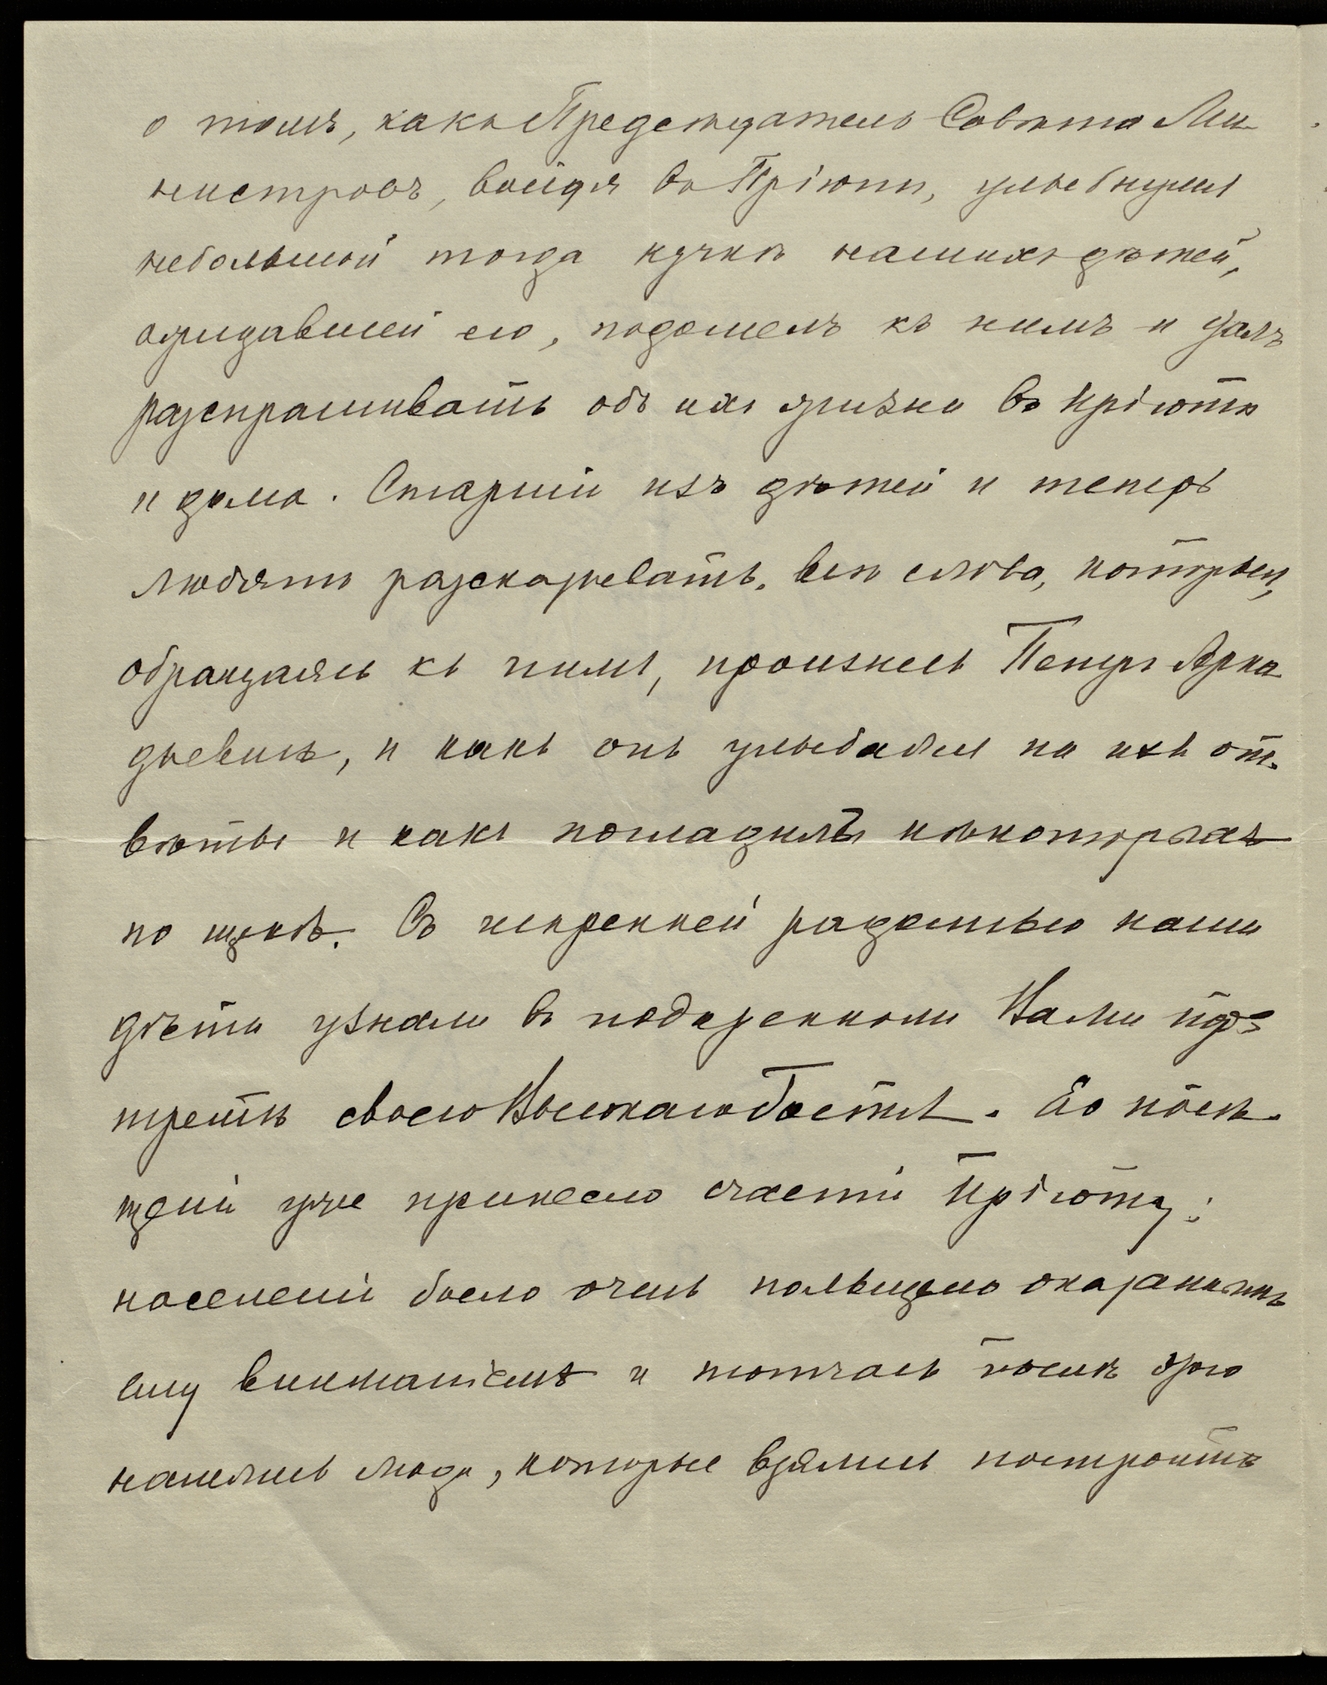 о томъ, какъ Предсѣдатель Совѣта Ми-
нистровъ, войдя въ Пріютъ, улыбнулся
небольшой тогда кучкѣ нашихъ дѣтей,
ожидавшей его, подошелъ къ нимъ и сталъ
разспрашивать объ ихъ жизни въ Пріютѣ
и дома. Старшіи изъ дѣтей и теперь
любятъ разсказывать всѣ слова, которыя,
обращаясь къ нимъ, произнесъ Петръ Арка-
дьевичъ, и какъ онъ улыбался на ихъ от-
вѣты и какъ погладилъ нѣкоторыхъ
по щекѣ. Съ искренней радостью наши
дѣти узнали въ подаренномъ Вами пор-
третѣ своего Высокаго Гостя. Его посѣ-
щеніе уже принесло счастіе Пріюту:
населеніе было очень польщено оказаннымъ
ему вниманіемъ и тотчасъ послѣ этого
нашлись люди, которые взялись построить